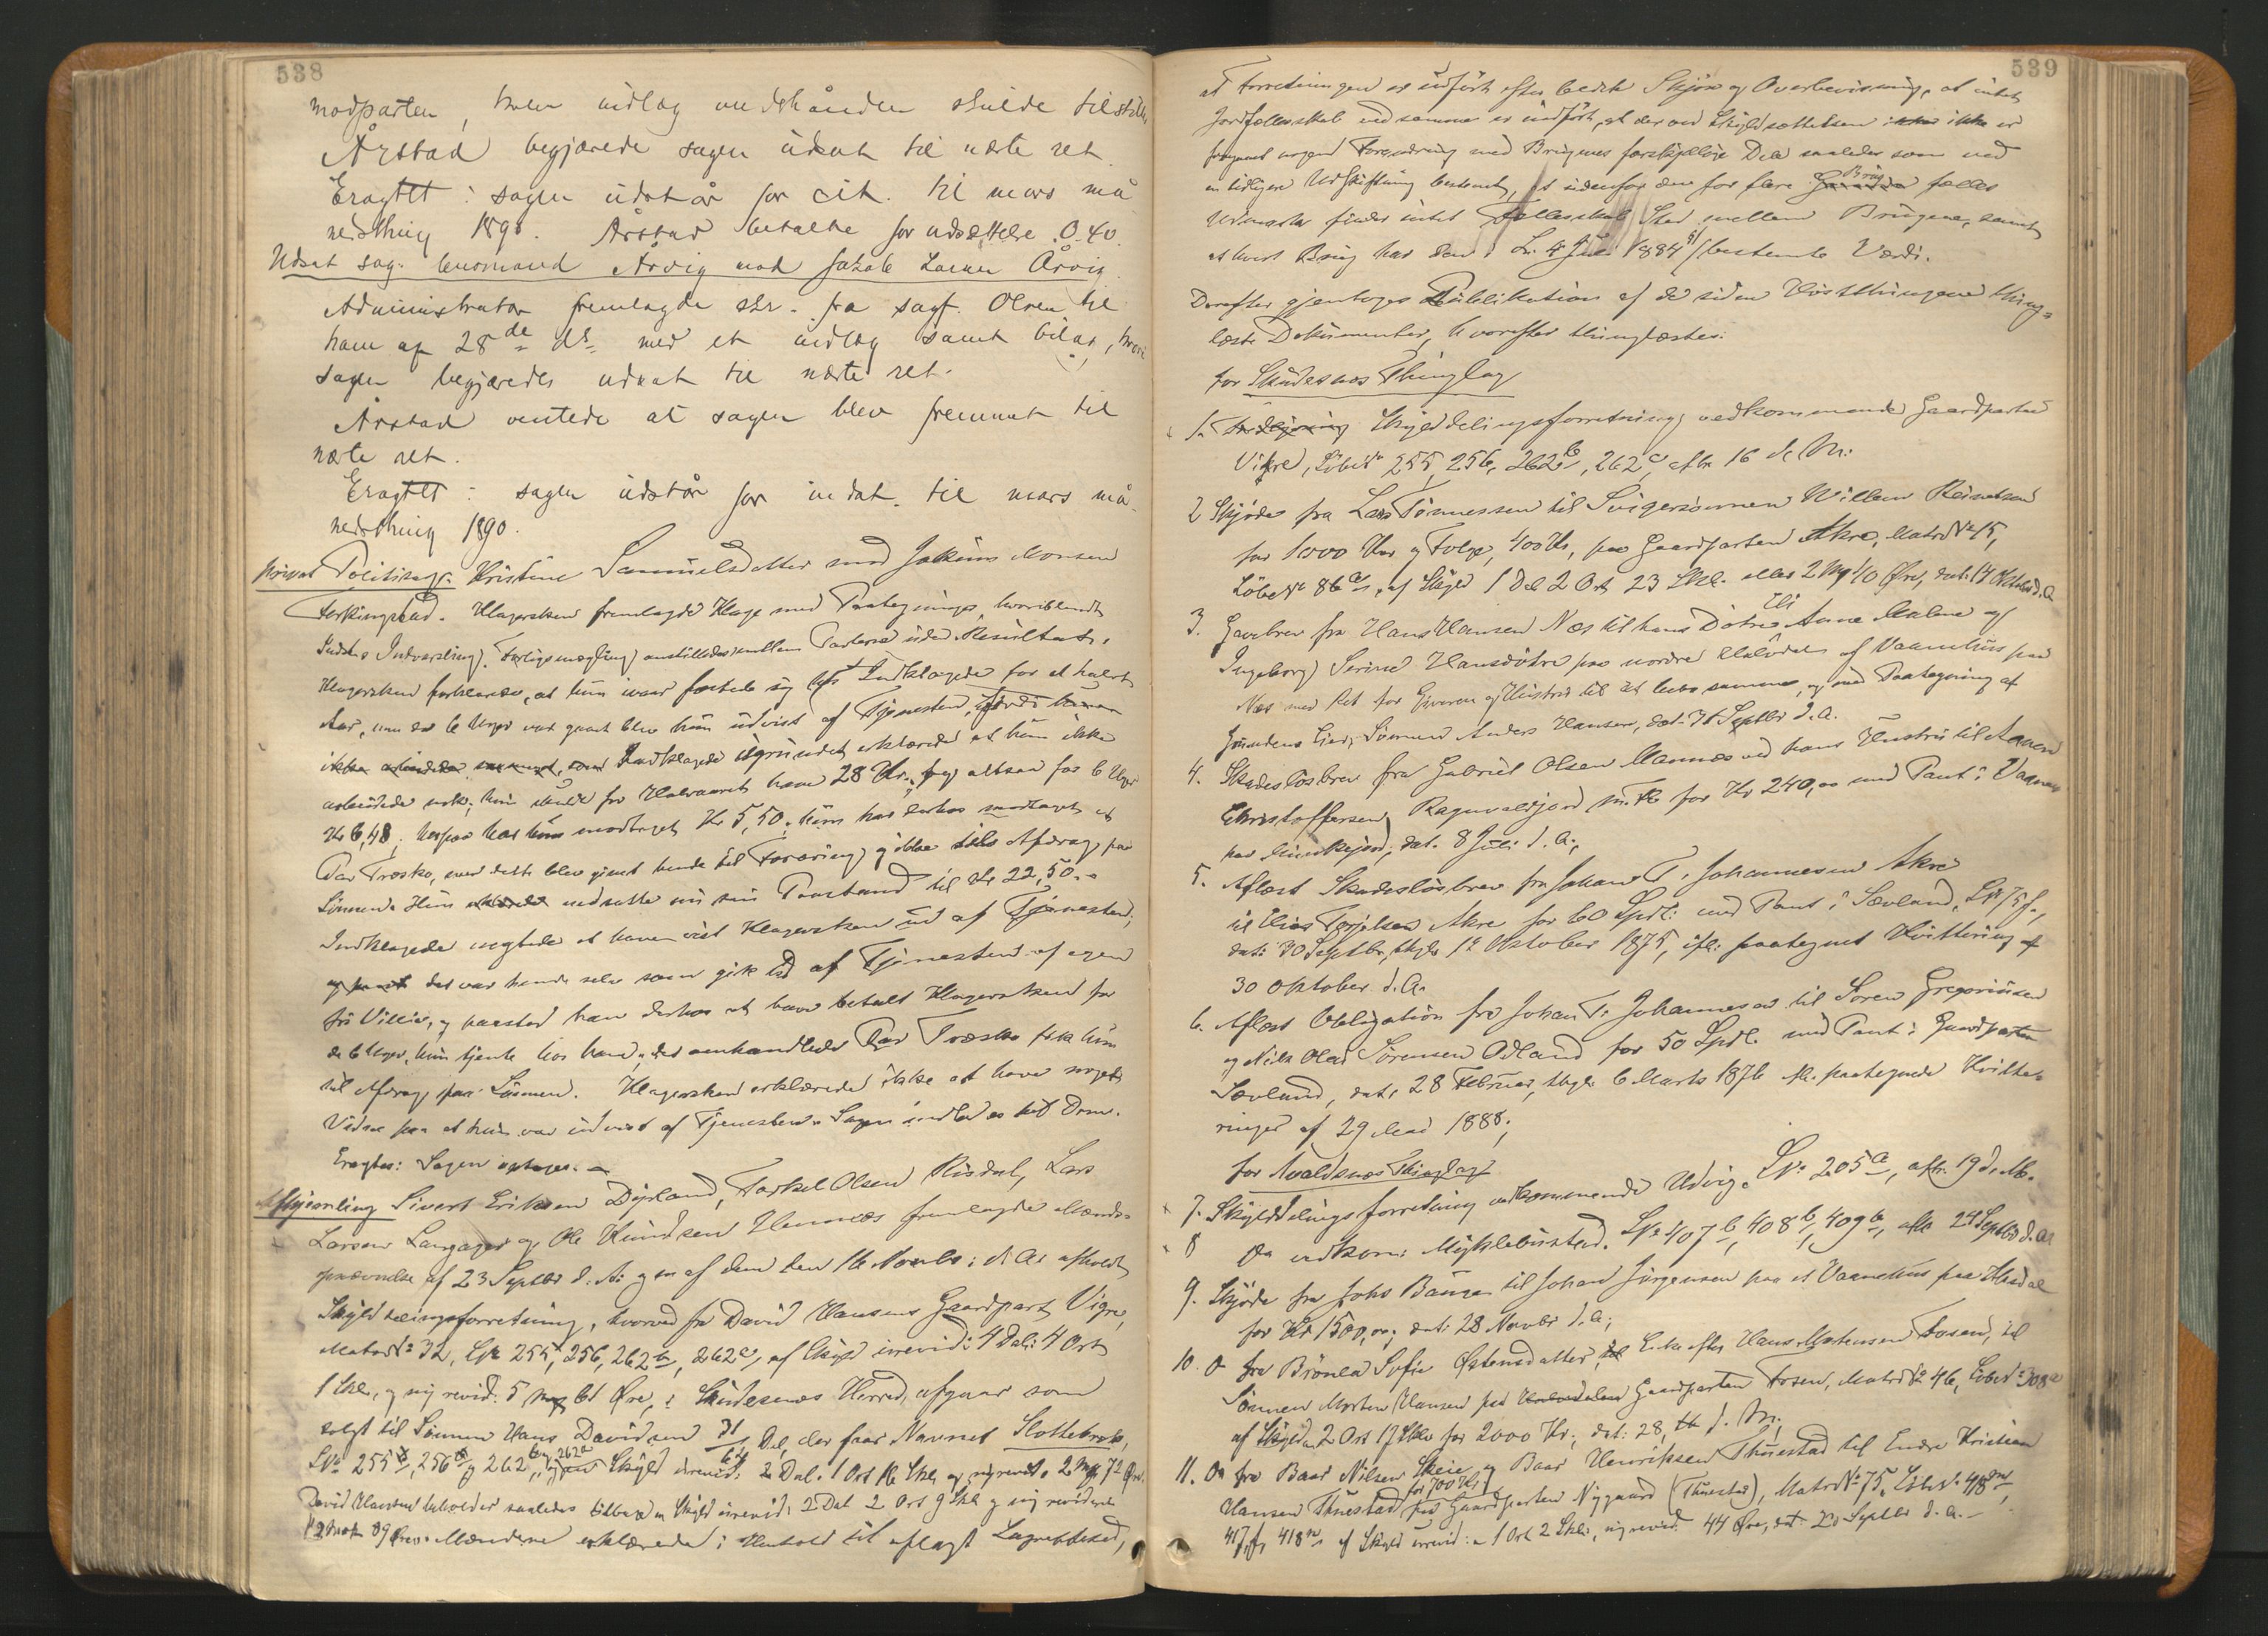 538
modparten, hvem indlæg underhånden skulde tilstilles
Årstad begjærede sagen udsat til næste ret.
Eragtet: sagen udstår for cit. til mars må
nedsthing 1890. Årstad betalte for udsættelse 0.40.
Udsat sag: lensmand Årvig mod Jakob Larsen Årvig.
Administrator fremlagde skr. fra sagf. Olsen til
ham af 28de ds. med et indlæg samt bilag, hvori
sagen begjæredes udsat til næste ret.
Årstad ventede at sagen blev fremmet til
næste ret.
Eragtet: sagen udstår for indst. til mars må-
nedsthing 1890.
Privat Politisag: Kristine Samuelsdatter mod Jakim Monsen
Ferkingstad. Klagersken fremlagde Klage med Paategninger, hvoriblandt
Indvarsling. Forligsmægling anstilledes mellem Parterne uden Resultat.
Klagersken forklarede, at hun havde fæstet sig hos Indklagede for et halvt
Aar, men da 6 Uger var gaaet blev hun udvist af Tjenesten, fordi hun
ikke arbeidede, som Indklagede ugrundet erklærede at hun ikke
arbeidede nok; hun skulde for Halvaaret have 28 Kr., altsaa for 6 Uger
Kr 6,48; herpaa har hun modtaget Kr 5,50; hun har derhos modtaget et
Par Træsko, men dette blev givet hende til Foræring og ikke til Afdrag paa
Lønnen. Hun nedsatte nu sin Paastand til Kr 22,50.
Indklagede negtede at have vist Klagersken ud af Tjenesten;
det var hende selv som gik ud af Tjenesten af egen
fri Villie, og paastod han derhos at have betalt Klagersken for
de 6 Uger, hun tjente hos ham; det omhandlede Par Træsko fik hun
til Afdrag paa Lønnen. Klagersken erklærede ikke at have noget
Vidne paa at hun var udvist af Tjenesten. Sagen indlodes til Dom.
Eragtes: Sagen optages.
Afhjemling Sivert Eriksen Dyrland, Torkel Olsen Risdal, Lars
Larsen Langager og Ole Knudsen Hemnæs fremlagde Mænds-
opnævnelse af 23 Septbr d. A. og en af dem den 16 Novbr. d. A. afholdt
Skylddelingsforretning, hvorved fra David Hansens Gaardpart Vigre,
Matr. No 32, LNo 255, 256, 262b, 262c, af Skyld urevid: 4 Dal: 4 Ort
1 Skl., og ny revid: 5 Mrk 61 Øre, i Skudesnæs Herred, afgaar som
solgt til Sønnen Hans Davidsen Del, der faar Navnet Slottebrok,
LNo 255b, 256b og 262 af Skyld urevid: 2 Dal. 1 Ort 16 Skl og nyrevid. 2 Mrk 72 Øre.
David Hansen beholder saaledes tilbage en Skyld urevid: 2 Dal 2 Ort 9 Skl og ny revideret
2 Mark 89 Øre. Mændene erklærede i Henhold til aflagt Lagrettesed,
539
at Forretningen er udført efter bedste Skjøn og Overbevisning, at intet
Jordfællesskab ved samme er indført, at der ved Skyldsættelsen ikke er
foregaaet nogen Forandring med Brugenes forskjellige Dele saaledes som ved
en tidligere Udskiftning bestemt, at udenfor den for flere Brug fælles
Udmark findes intet Fællesskab Sted mellem Brugene, samt
at hvert Brug har den i Lr. 4 Juni 1884 § bestemte Værdi.
Derefter gjentoges Publikation af de siden Høstthingene thing-
læste Dokumenter, hvorefter thinglæstes:
for Skudesnæs Thinglag
1. Skylddelingsforretning vedkommende Gaardparten
Vigre, Løbe No 255, 256, 262b, 262c, afh. 16 d. M.
2 Skjøde fra Lars Tønnessen til Svigersønnen Willem Reinertsen
for 1000 Kr og Folge, 400 Kr, paa Gaardparten Akre, Matr No 15,
Løbe No 86a, af Skyld 1 Dal 2 Ort 23 Skl. eller 2 Mrk 40 Øre, dat. 14 Oktober d. A.
3. Gavebrev fra Hans Hansen Næs til hans Døtre Eli Anne Malene og
Ingeborg Serine Hansdøtre paa nordre Halvdel af Vaanehus paa
Næs med Ret for Giveren og Hustru til at bebo samme, og med Paategning af
Grundens Eier, Sønnen Anders Hansen, dat. 7 Septbr d. A.
4. Skadesløsbrev fra Gabriel Olsen Mannæs ved hans Hustru til Aanen
Christoffersen Ragnvaldjord for Kr 240,00 med Pant i Vaanehus
paa Munkejord, dat. 8 Juli d. A.,
5. Aflæst Skadesløsbrev fra Johan T. Johannesen Akre
til Elias Torjelsen Akre for 60 Spdl. med Pant i Sævland, LNo 75f,
dat: 30 Septbr., thgl. 1 Oktober 1875, ifl. paategnet Kvittering af
30 Oktober d. A.
6. Aflæst Obligation fra Johan T. Johannesen til Søren Gregoriussen
og Nils Olai Sørensen Odland for 50 Spdl. med Pant i Gaardparten
Sævland, dat. 28 Februar, thgl. 6 Marts 1876 ifl. paategnede Kvitte-
ringer af 29 Mai 1888;
for Avaldsnæs Thinglag
7. Skylddelingsforretning vedkommende Udvig. LNo 205a, afh. 19 d. M.
8 Do vedkom. Myklebustad. LNo 407b, 408b, 409b, afh 24 Septbr d. A.
9. Skjøde fra Johs Bauge til Johan Jørgensen paa et Vaanehus paa Husdal
for Kr 1500,00; dat: 28 Novbr d. A.;
10. Do fra Brønla Sofie Østensdatter, Enke efter Hans Mortensen Fosen, til
Sønnen Morten Hansen paa Gaardparten Fosen, Matr No 46, Løbe No 308
af Skyld 2 Ort 17 Skl for 2000 Kr., dat: 28 d. M.;
11. Do fra Baar Nilsen Skeie og Baar Henriksen Thuestad til Endre Kristian
Hansen Thuestad for 700 Kr paa Gaardparten Nygaard (Thuestad), Matr No 75, Løbe No 418,
417, 418 af Skyld urevid: 1 Ort 2 Skl., ny revid: 44 Øre, dat. 20 Septbr d. A.